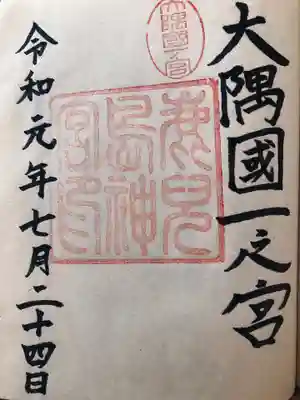 大隅國一宮
大隅國一之宮
鹿兒
島神
宮印
令和元年七月二十四日